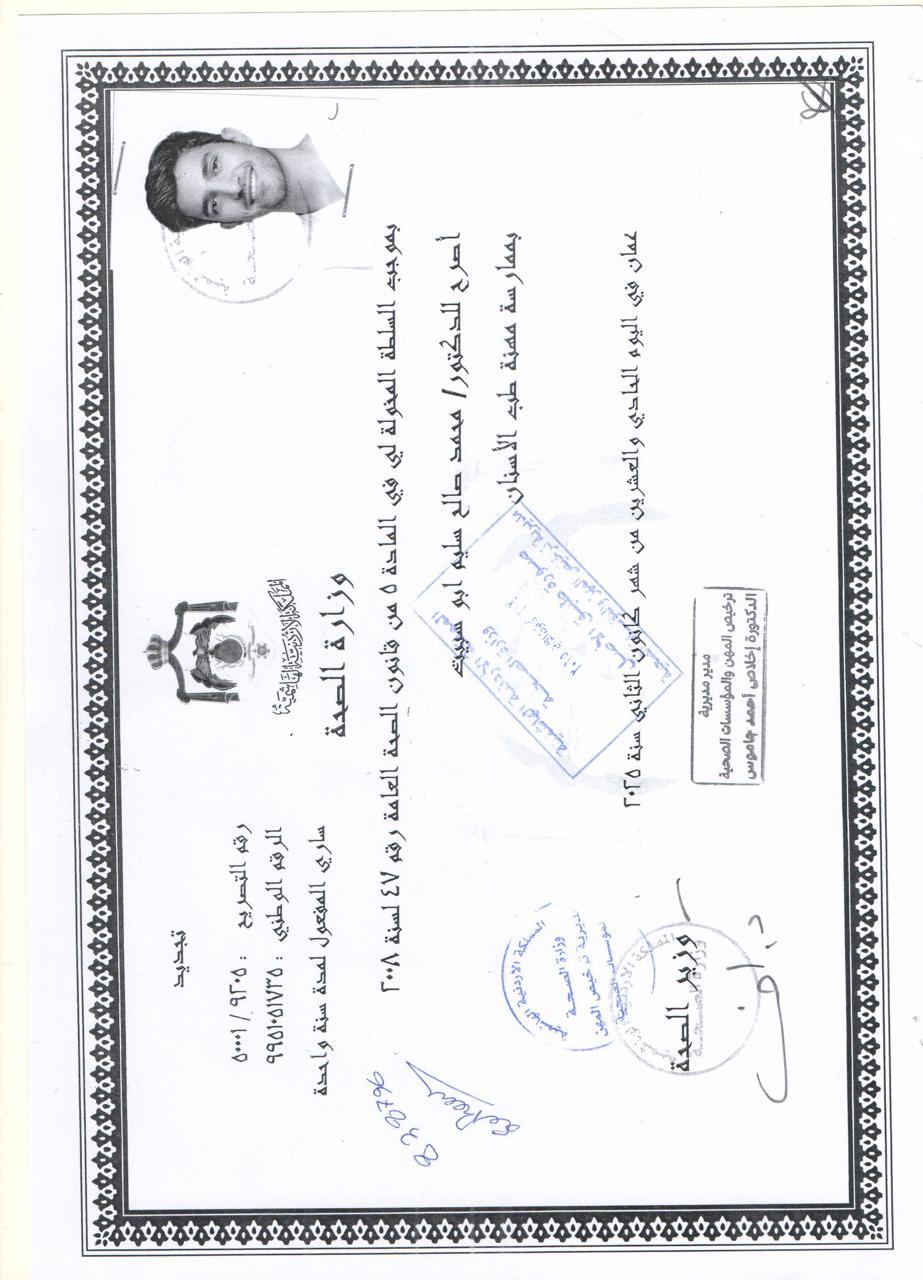 تجديد
رقم التصريح : ٩٢٠٥ / ٥٠٠٠١
الرقم الوطني : ٩٩٥١٠٥١٧٣٥
ساري المفعول لمدة سنة واحدة
المملكة الأردنية الهاشمية
وزارة الصحة
بموجب السلطة المخولة لي في المادة ٥ من قانون الصحة العامة رقم ٤٧ لسنة ٢٠٠٨
أصرح للدكتور/ محمد صالح سليم ابو سبيت
بممارسة مهنة طب الأسنان
عمان في اليوم الحادي والعشرين من شهر كانون الثاني سنة ٢٠٢٥
وزير الصحة
مدير مديرية
ترخيص المهن والمؤسسات الصحية
الدكتورة إخلاص أحمد جاموس
المملكة الاردنية الهاشمية
وزارة الصحة
صورة طبق الأصل
المملكة الاردنية
وزارة الصحة
مديرية ترخيص المهن
والمؤسسات الصحية